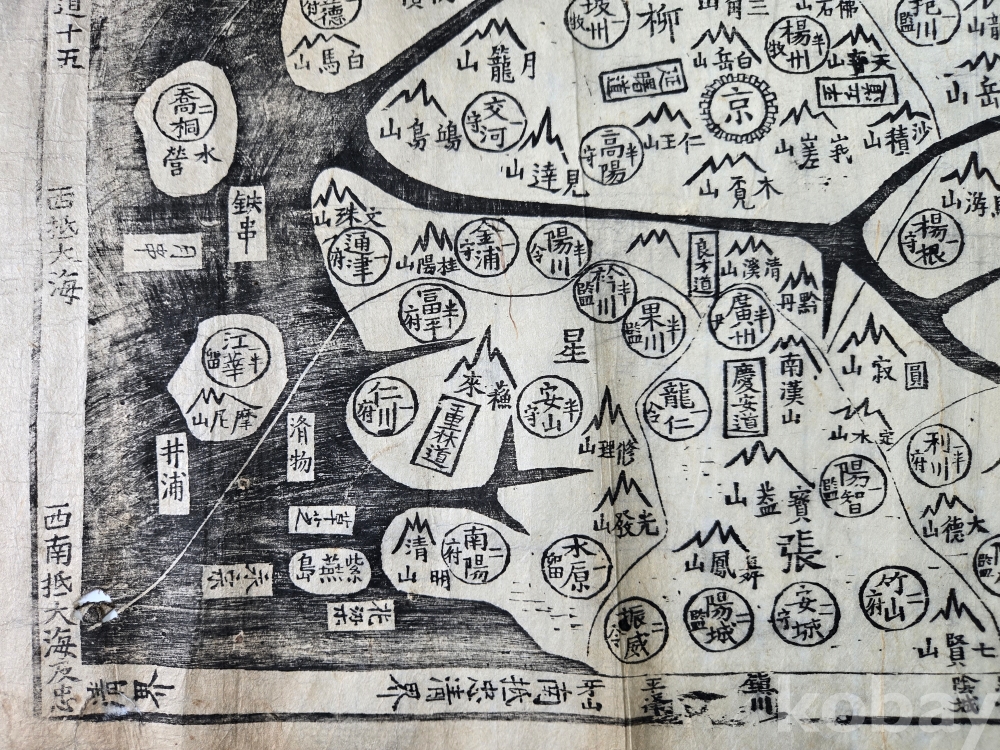 道十五
西抵大海
西南抵大海及忠
喬桐
二
水營
鉄串
月串
江華
半
留
摩尼山
井浦
德
府
白馬山
月籠山
交河
一
守
坡州
一
牧
柳
三角山
白岳山
延曙道
京
楊州
半
牧
佛
天
抱川
一
監
岳山
高陽
半
守
仁王山
見達山
木覓山
峩嵯山
沙積山
楊根
一
守
文珠山
通津
一
府
桂陽山
金浦
一
守
陽川
半
令
衿川
半
監
果川
半
監
良才道
清溪山
廣州
半
富平
半
府
星
仁川
一
府
重林道
安山
半
守
修理山
光發山
龍仁
一
令
慶安道
南漢山
圓寂山
利川
半
陽智
一
監
寶盖山
大德山
張
紫燕島
清明山
南陽
二
府
水原
一
留
鳳山
振威
二
令
陽城
二
監
安城
二
守
竹山
二
府
七賢山
南抵忠清界
鎮川
陰城
kobay